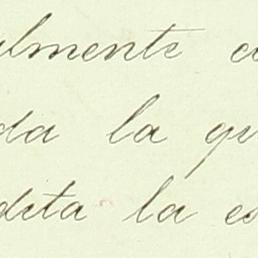 almente c
da la qu
deta la es